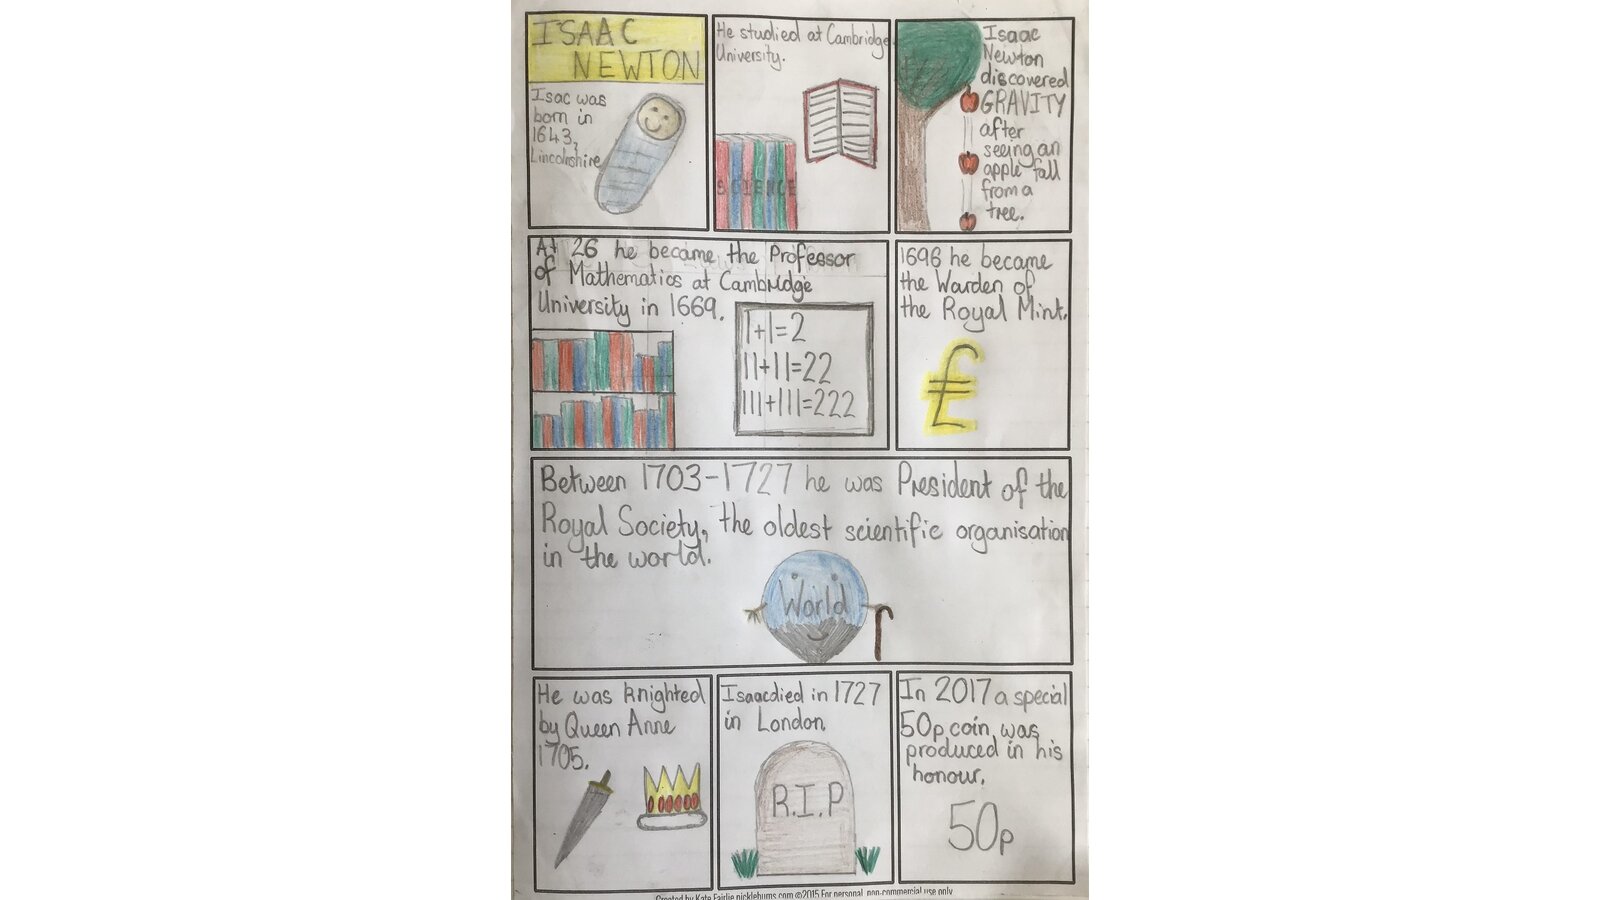 ISAAC
NEWTON
Isac was
born in
1643,
Lincolnshire
He studied at Cambridge
University.
SCIENCE
Isaac
Newton
discovered
GRAVITY
after
seeing an
apple fall
from a
tree.
At 26 he became the Professor
of Mathematics at Cambridge
University in 1669.
1+1=2
11+11=22
111+111=222
1696 he became
the Warden of
the Royal Mint.
£
Between 1703-1727 he was President of the
Royal Society, the oldest scientific organisation
in the world.
World
He was knighted
by Queen Anne
1705.
Isaac died in 1727
in London
R.I.P
In 2017 a special
50p coin was
produced in his
honour.
50p
Created by Kate Fairlie picklebums.com ©2015 For personal, non-commercial use only